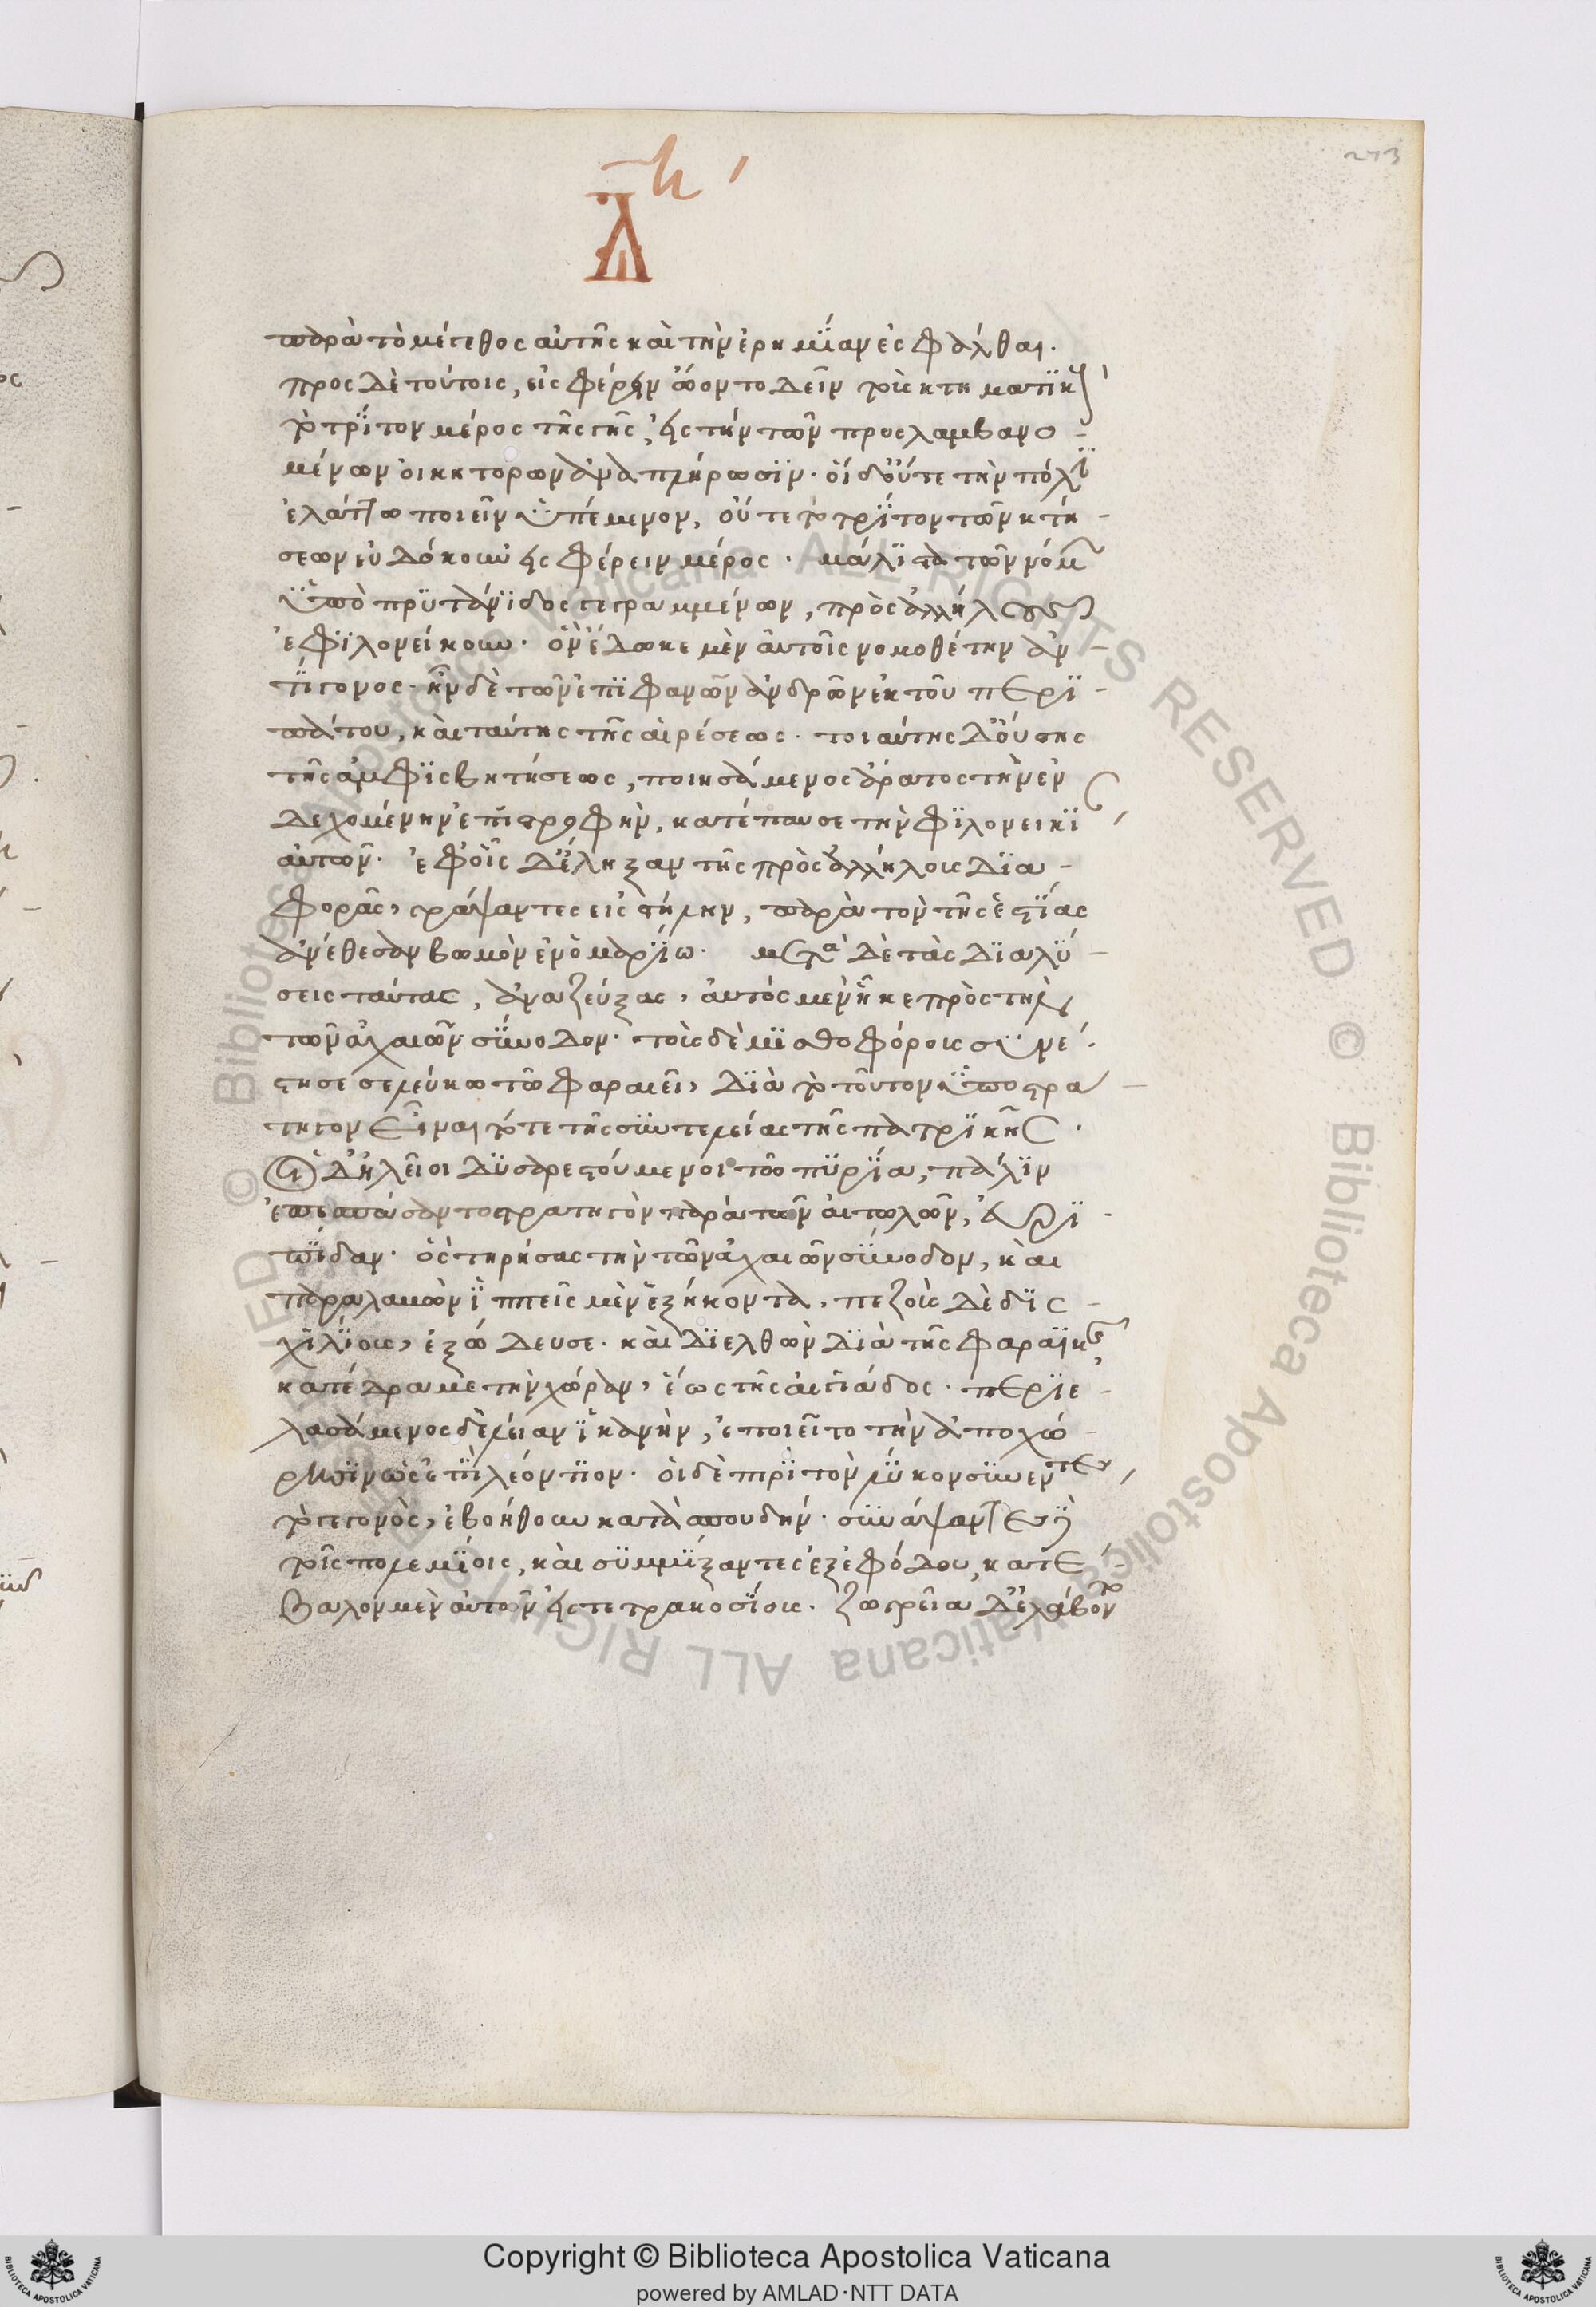 273
παρὰ τὸ μέγεθος αὐτῆς καὶ τὴν ἐρημΐαν ἐσφάλθαι.
προς δὲ τούτοις, εἰσφέρειν ὤοντο δεῖν τοὺς κτηματϊκοὺς
τὸ τρΐτον μέρος τῆς γῆς, εἰς τὴν τῶν προσλαμβανο-
μένων οἰκητορων ἀναπλήρωσϊν. οἱ δ' οὔτε τὴν πόλϊν
ἐλάττω ποιεῖν ϋπέμενον, οὔτε τὸ τρΐτον τῶν κτή-
σεων εὐδόκουν εἰσφέρειν μέρος. μάλϊστα τῶν νόμων
ϋπὸ πρϋτάνϊδος γεγραμμένων, πρὸς ἀλλήλους
ἐφϊλονείκουν. ὃν ἔδωκε μὲν αὐτοῖς νομοθέτην ἀν-
τΐγονος. ἦν δὲ τῶν ἐπϊφανῶν ἀνδρῶν ἐκ τοῦ περϊ-
πάτου, καὶ ταύτης τῆς αἱρέσεως. τοιαύτης δ' οὔσης
τῆς ἀμφϊσβητήσεως, ποιησάμενος ἄρατος τὴν ἐν
δεχομένην ἐπϊστροφὴν, κατέπαυσε τὴν φϊλονεικΐαν
αὐτῶν. ἐφ' οἷς δ' ἔληξαν τῆς πρὸς ἀλλήλους δϊα-
φορᾶς, γράψαντες εἰς στήλην, παρὰ τὸν τῆς ἑστΐας
ἀνέθεσαν βωμὸν ἐν ὁμαρΐω. μετὰ δὲ τὰς δϊαλϋ-
σεις ταύτας, ἀναζεύξας, αὐτὸς μὲν ἧκε πρὸς τὴν
τῶν ἀχαιῶν σϋνοδον. τοὺς δὲ μϊσθοφόρους σϋνέ-
στησε σελεύκω τῶ φαραιεῖ, δϊὰ τὸ τοῦτον ϋποστρα-
τηγον εἶναι τότε τῆς σϋντελείας τῆς πατρϊκῆς.
οἱ δ' ἠλεῖοι δϋσαρεστούμενοι τῶ πϋρΐα, πάλϊν
ἐπεσπάσαντο στρατηγὸν παρὰ τῶν αἰτωλῶν, εὐρϊ-
πϊδαν. ὃς τηρήσας τὴν τῶν ἀχαιῶν σϋνοδον, καὶ
παραλαμὼν ϊππεῖς μὲν ἑξήκοντα, πεζοὺς δὲ δϊς-
χϊλΐους, ἐξώδευσε. καὶ δϊελθὼν δϊὰ τῆς φαραϊκῆς,
κατέδραμε τὴν χώραν, ἕως τῆς αἰγιάδος. περϊε-
λασάμενος δὲ λείαν ϊκανὴν, ἐποιεῖτο τὴν ἀποχώ-
ρησϊν ὡς ἐπϊ λεόντϊον. οἱ δὲ περϊ τὸν λϋκον σϋνέντες
τὸ γεγονὸς, ἐβοήθουν κατὰ σπουδήν. σϋνάψαντες δὲ
τοῖς πολεμΐοις, καὶ σϋμμΐξαντες ἐξ ἐφόδου, κατέ-
βαλον μὲν αὐτῶν εἰς τετρακοσΐους. ζωγρεία δ' ἔλαβον